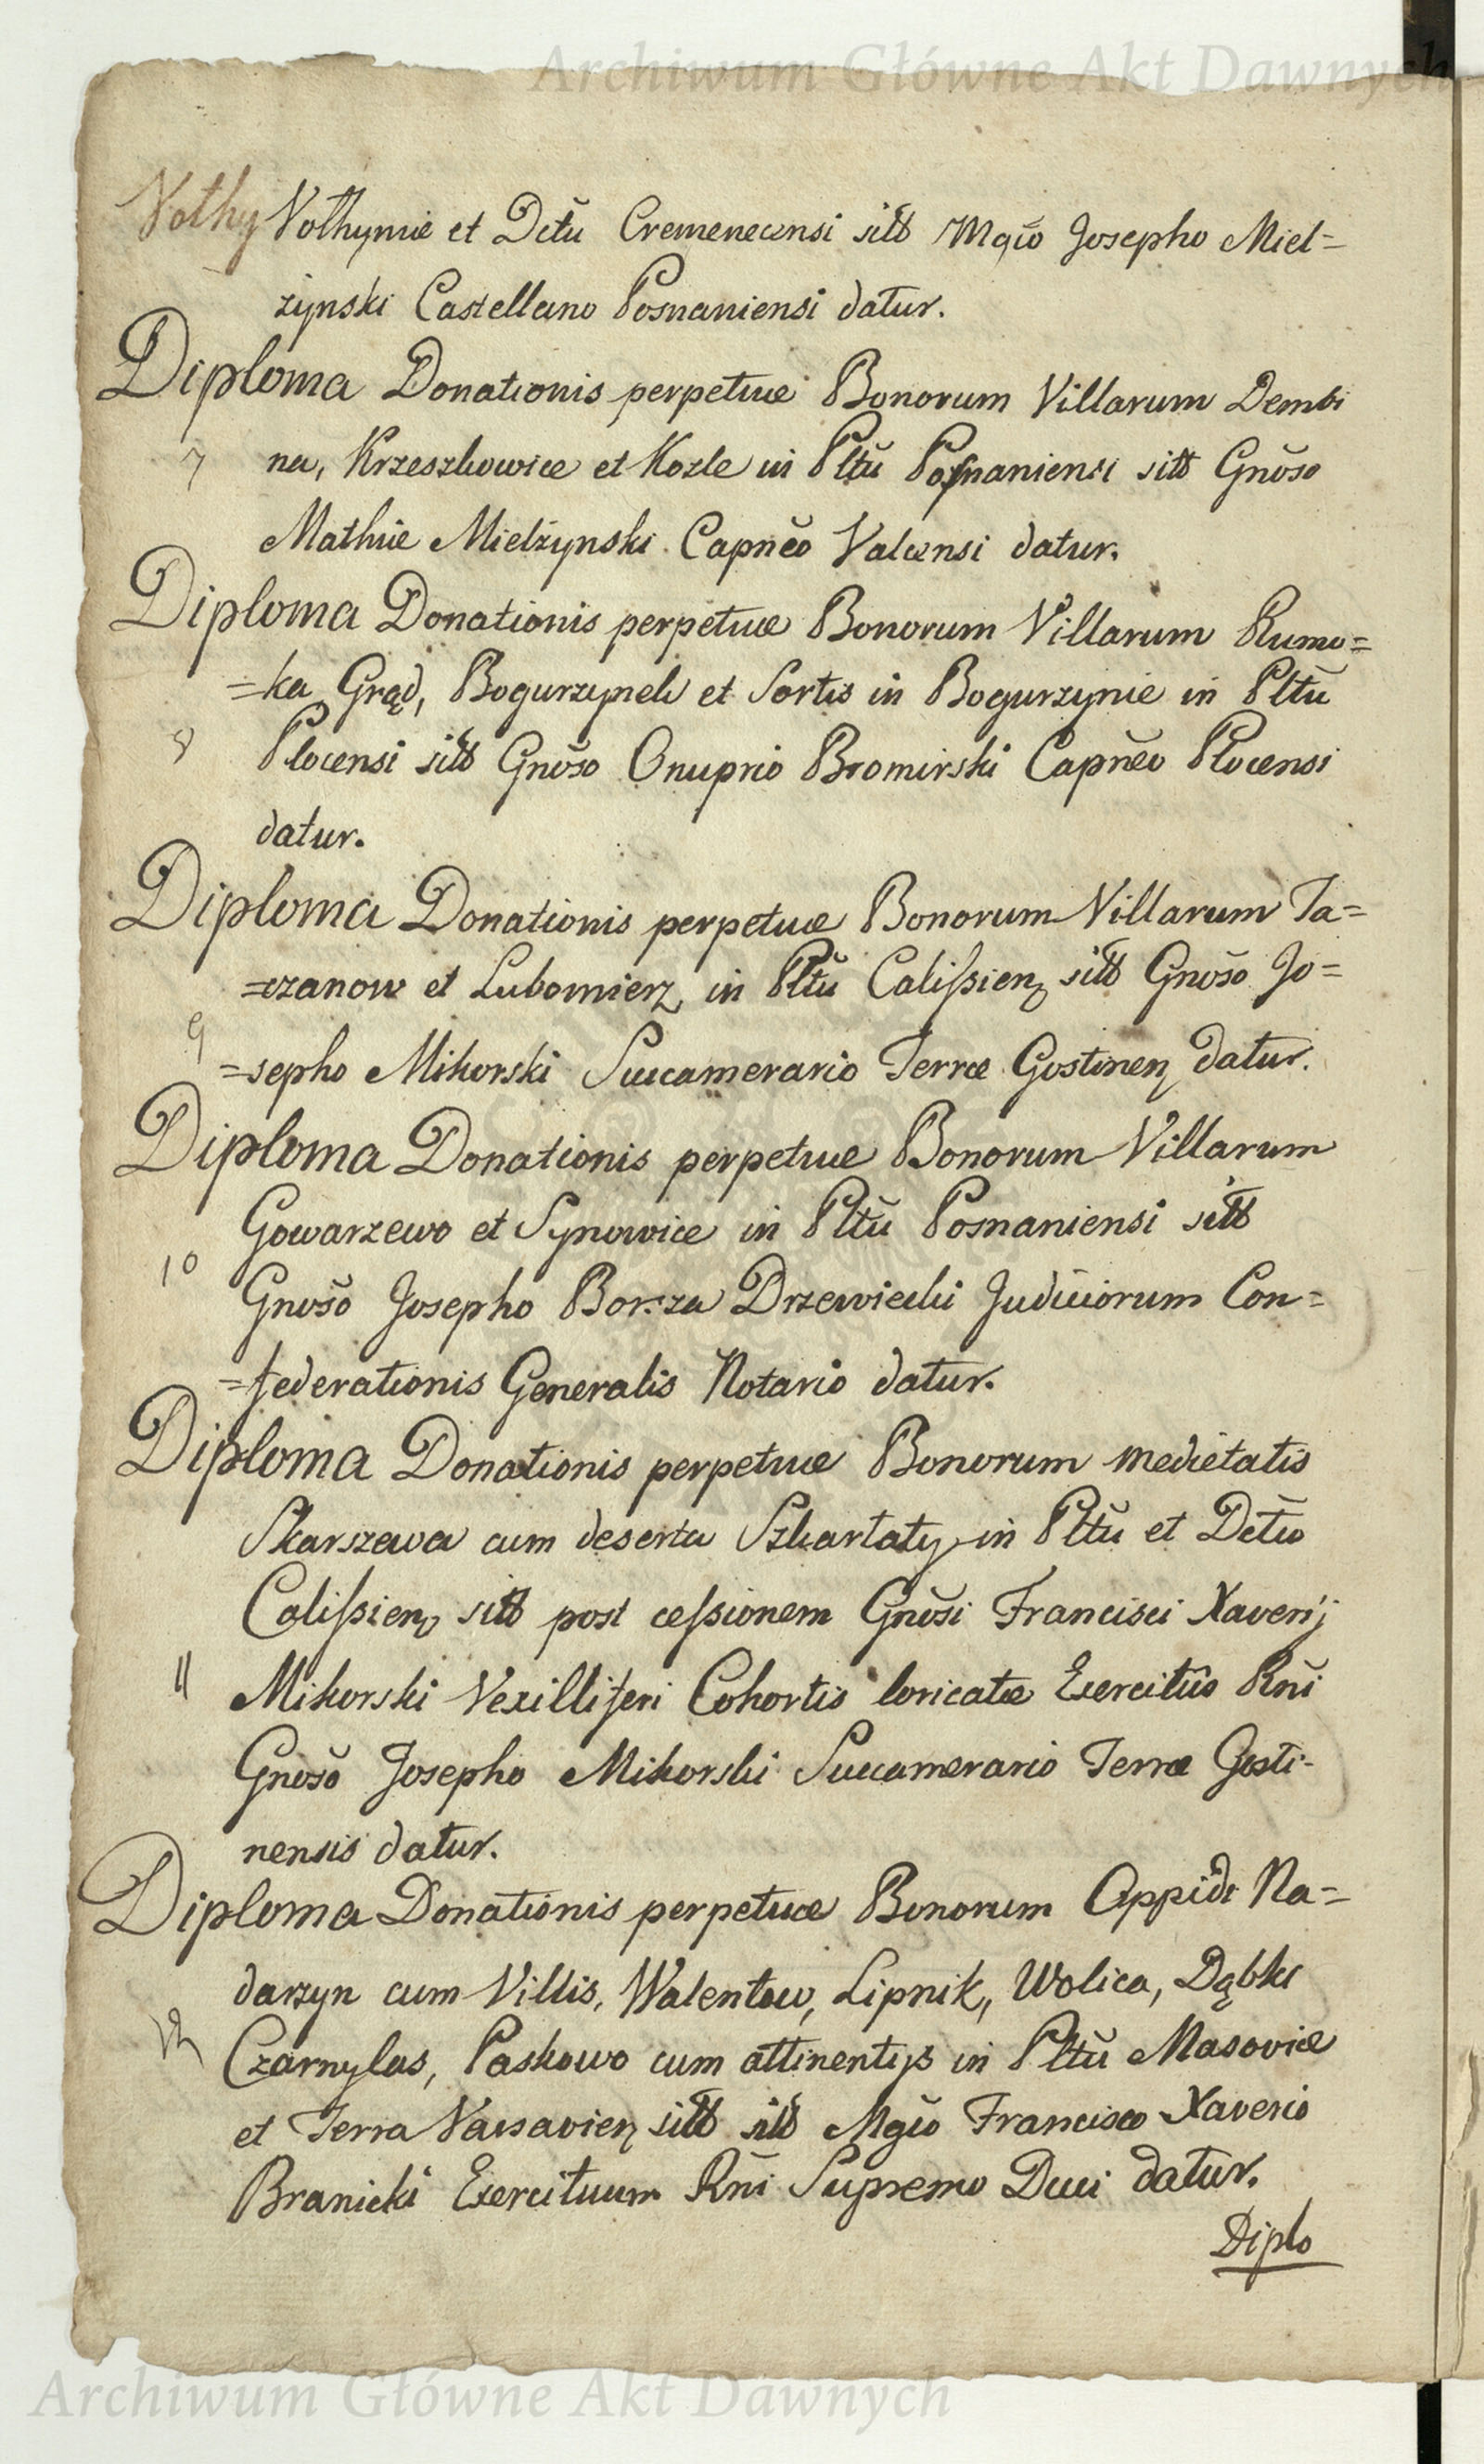 Archiwum Główne Akt Dawnych
Volhy Volhyniæ et Dĉtu Cremenecensi sitt Mgĉo Josepho Miel=
żynski Castellano Posnaniensi datur.
Diploma Donationis perpetuæ Bonorum Villarum Dembi
7 na, Krzeszkowice et Kozle in Pltũ Posnaniensi sitt Gnõso
Mathiæ Mielżynski Capnẽo Valcensi datur.
Diploma Donationis perpetuæ Bonorum Villarum Rumo=
=ka Grąd, Bogurzynek et Sortis in Bogurzynie in Pltũ
8 Plocensi sitt Gnõso Onuprio Bromirski Capnẽo Plocensi
datur.
Diploma Donationis perpetuæ Bonorum Villarum Ta=
=czanow et Lubomierz in Pltũ Calissien sitt Gnõso Jo=
9 =sepho Mikorski Succamerario Terræ Gostinen datur.
Diploma Donationis perpetuæ Bonorum Villarum
Gowarzewo et Synowice in Pltũ Posnaniensi sitt
10 Gnõso Josepho Borsza Drzewiecki Judiciorum Con=
=federationis Generalis Notario datur.
Diploma Donationis perpetuæ Bonorum medietatis
Skarszewa cum deserta Szkartaty in Pltũ et Dĉtu
Calissien sitt post cessionem Gnõsi Francisci Xaverij
11 Mikorski Vexilliferi Cohortis loricatæ Exercitûs Rñi
Gnõso Josepho Mikorski Succamerario Terræ Gosti-
nensis datur.
Diploma Donationis perpetuæ Bonorum Oppidi Na=
darzyn cum Villis, Walentow, Lipnik, Wolica, Dąbki
12 Czarnylas, Paskowo cum attinentijs in Pltũ Masoviæ
et Terra Varsavien sitt sitt Mgĉo Francisco Xaverio
Branicki Exercituum Rñi Supremo Duci datur.
Diplo
Archiwum Główne Akt Dawnych